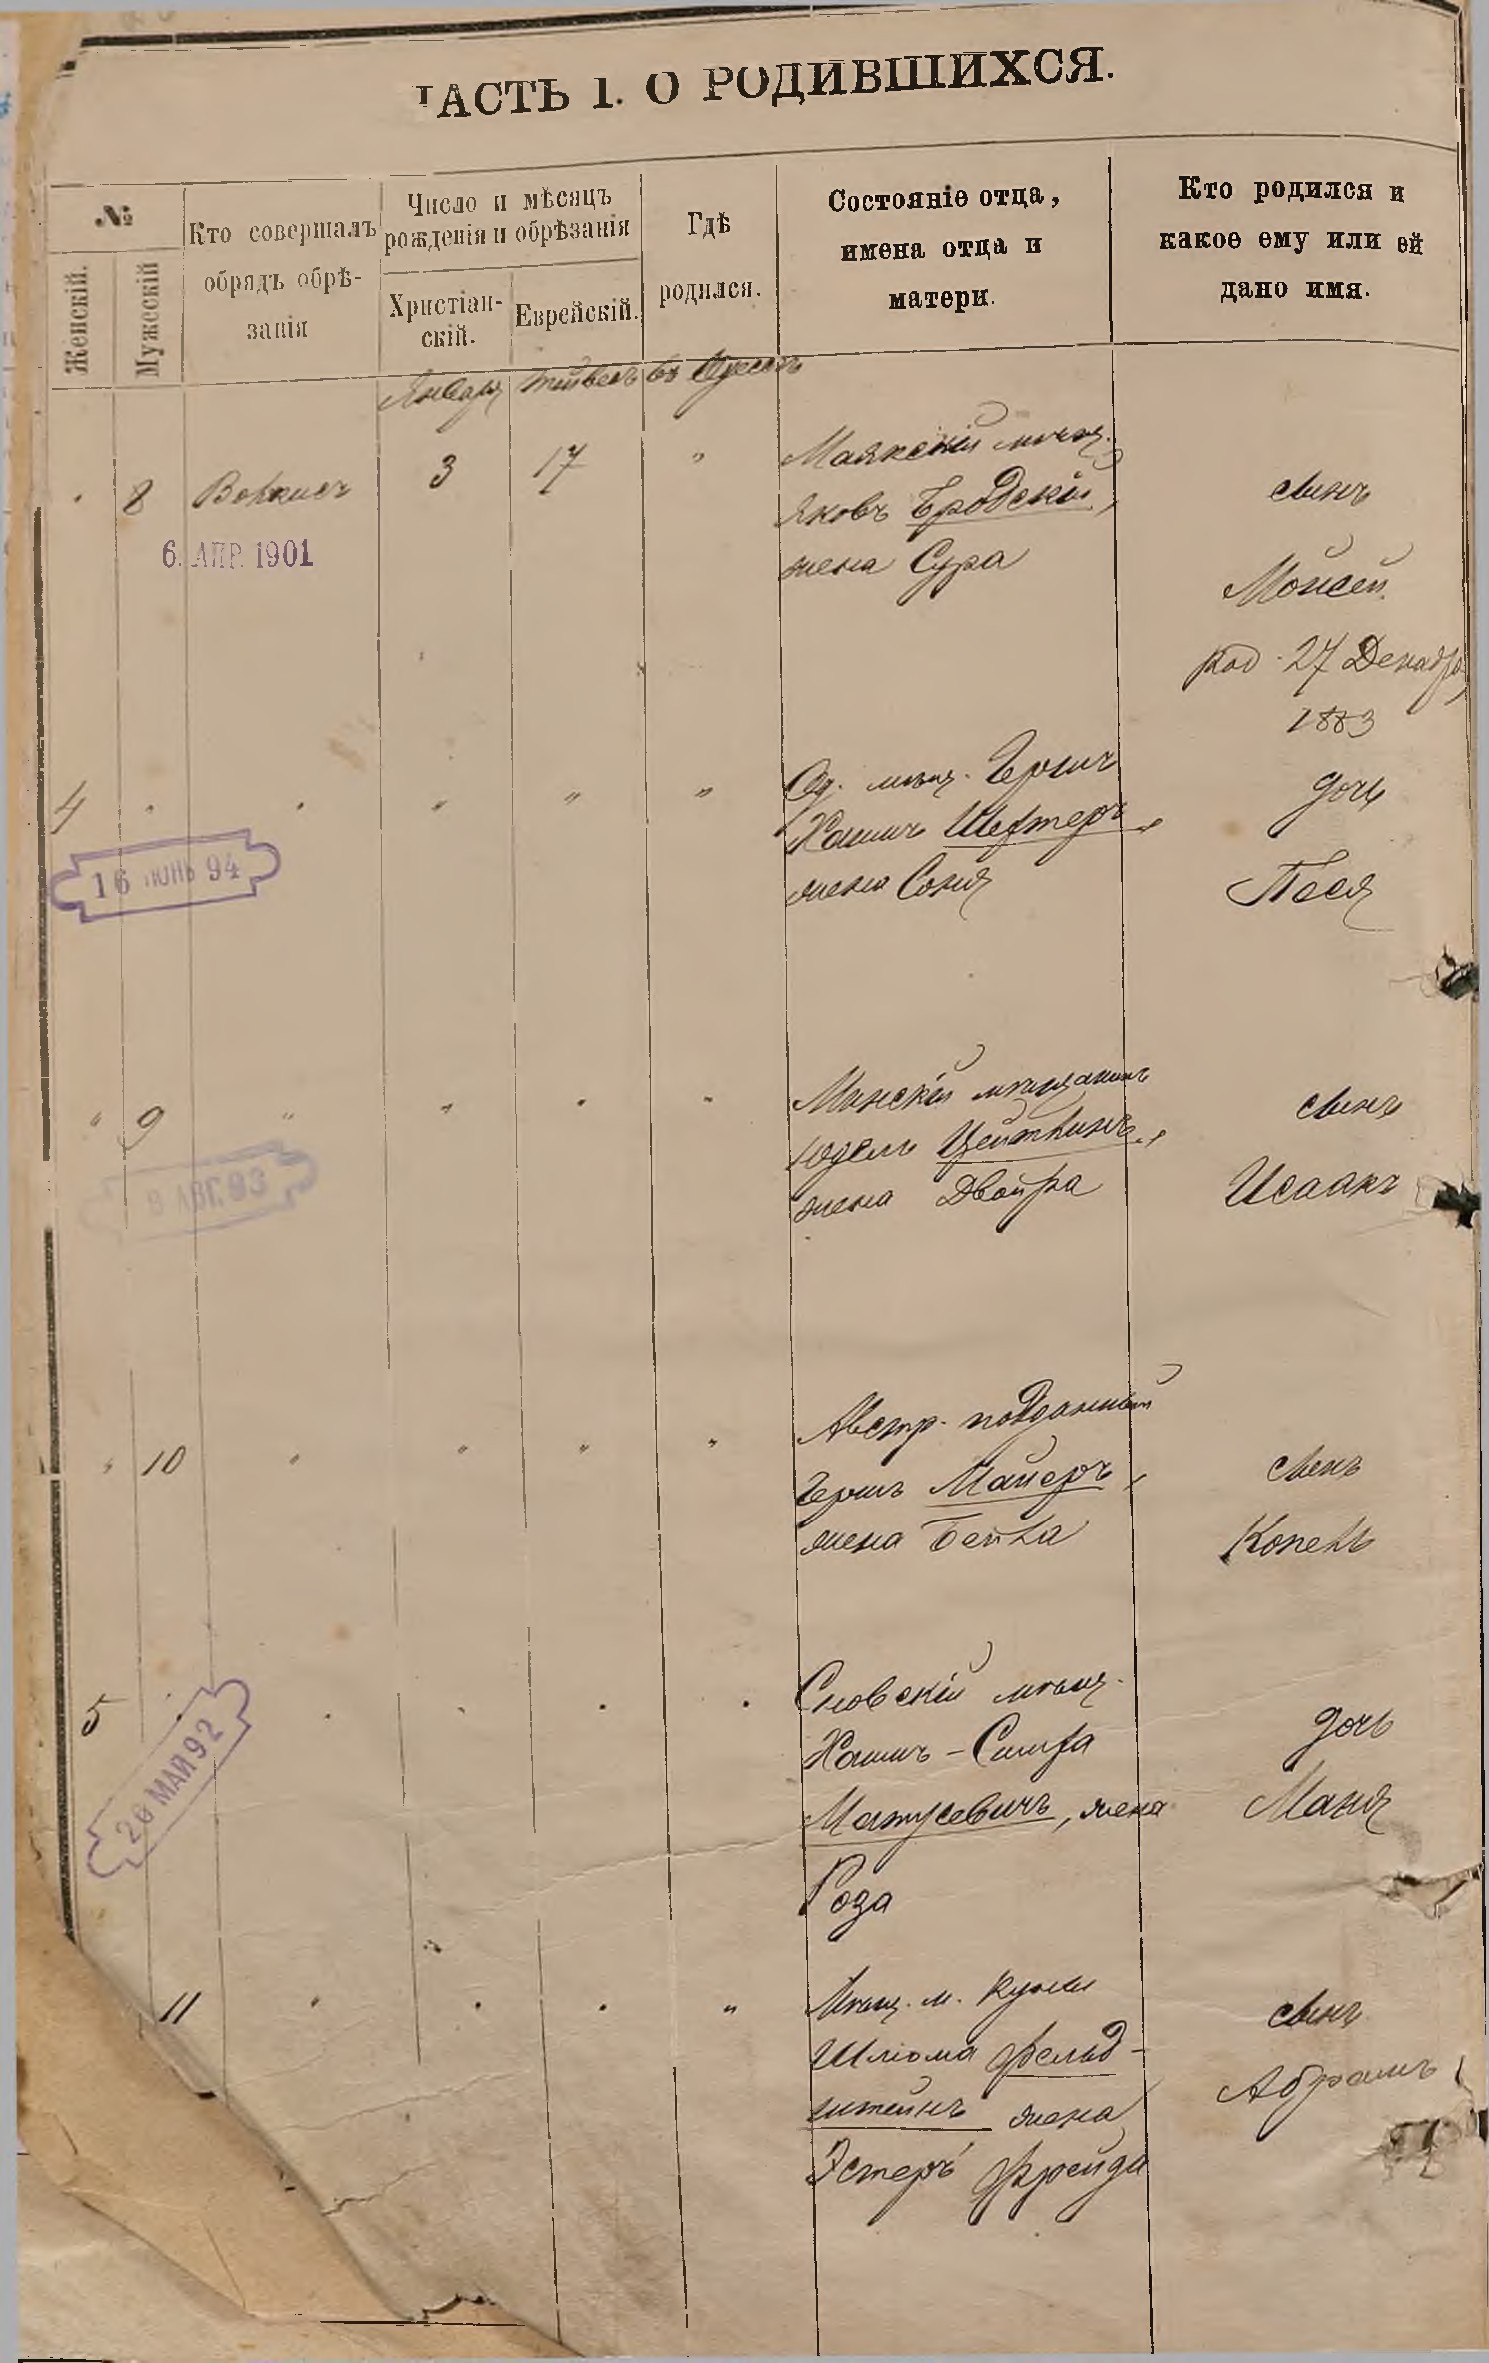 ЧАСТЬ 1. О РОДИВШИХСЯ.
№
Женскій.
Мужескій
Кто совершалъ
обрядъ обрѣ-
занія
Число и мѣсяцъ
рожденія и обрѣзанія
Христіан-
скій.
Еврейскій.
Гдѣ
родился.
Состояніе отца,
имена отца и
матери.
Кто родился и
какое ему или ей
дано имя.
Января Тейвесъ въ Одессѣ
8 3 17 " Маякскій мѣщ.
Яковъ Бродскій,
жена Сура
сынъ
Моисей
род. 27 Декабря
1883
6. АПР. 1901
4 " " " Од. мѣщ. Гершъ
Хаимъ Шефтеръ,
жена Соня
дочь
Песя
16 ІЮНЬ 94
" 9 " " " " Минскій мѣщанинъ
Юдель Цейтлинъ,
жена Двойра
сынъ
Исаакъ
8 АВГ. 93
" 10 " " " " Австр. подданный
Гершъ Майеръ,
жена Бейла
сынъ
Копель
5 мѣщ.
Хаимъ-Симха
Матусевичъ, жена
Роза
дочь
Маня
26 МАЙ 92
11 " Мѣщ. м.
Шлiома Фельд-
штейнъ жена
Эстеръ Фрейда
сынъ
Абрамъ